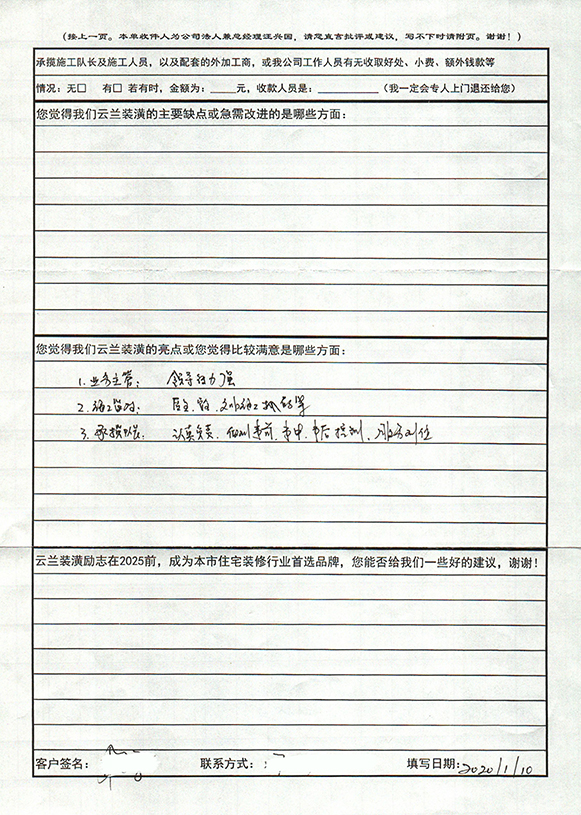 (接上一页。本单收件人为公司法人兼总经理汪兴国，请您直言批评或建议，写不下时请附页。谢谢！)
承揽施工队长及施工人员，以及配套的外加工商，或我公司工作人员有无收取好处、小费、额外钱款等
情况：无□ 有□ 若有时，金额为：____元，收款人员是：__________（我一定会专人上门退还给您）
您觉得我们云兰装潢的主要缺点或急需改进的是哪些方面：
您觉得我们云兰装潢的亮点或您觉得比较满意是哪些方面：
1. 业务主管： 领导能力强
2. 施工
3. 承揽队长： 认真负责、做到事前、事中、事后控制、服务到位
云兰装潢励志在2025前，成为本市住宅装修行业首选品牌，您能否给我们一些好的建议，谢谢！
客户签名： 联系方式： 填写日期：2020/1/10